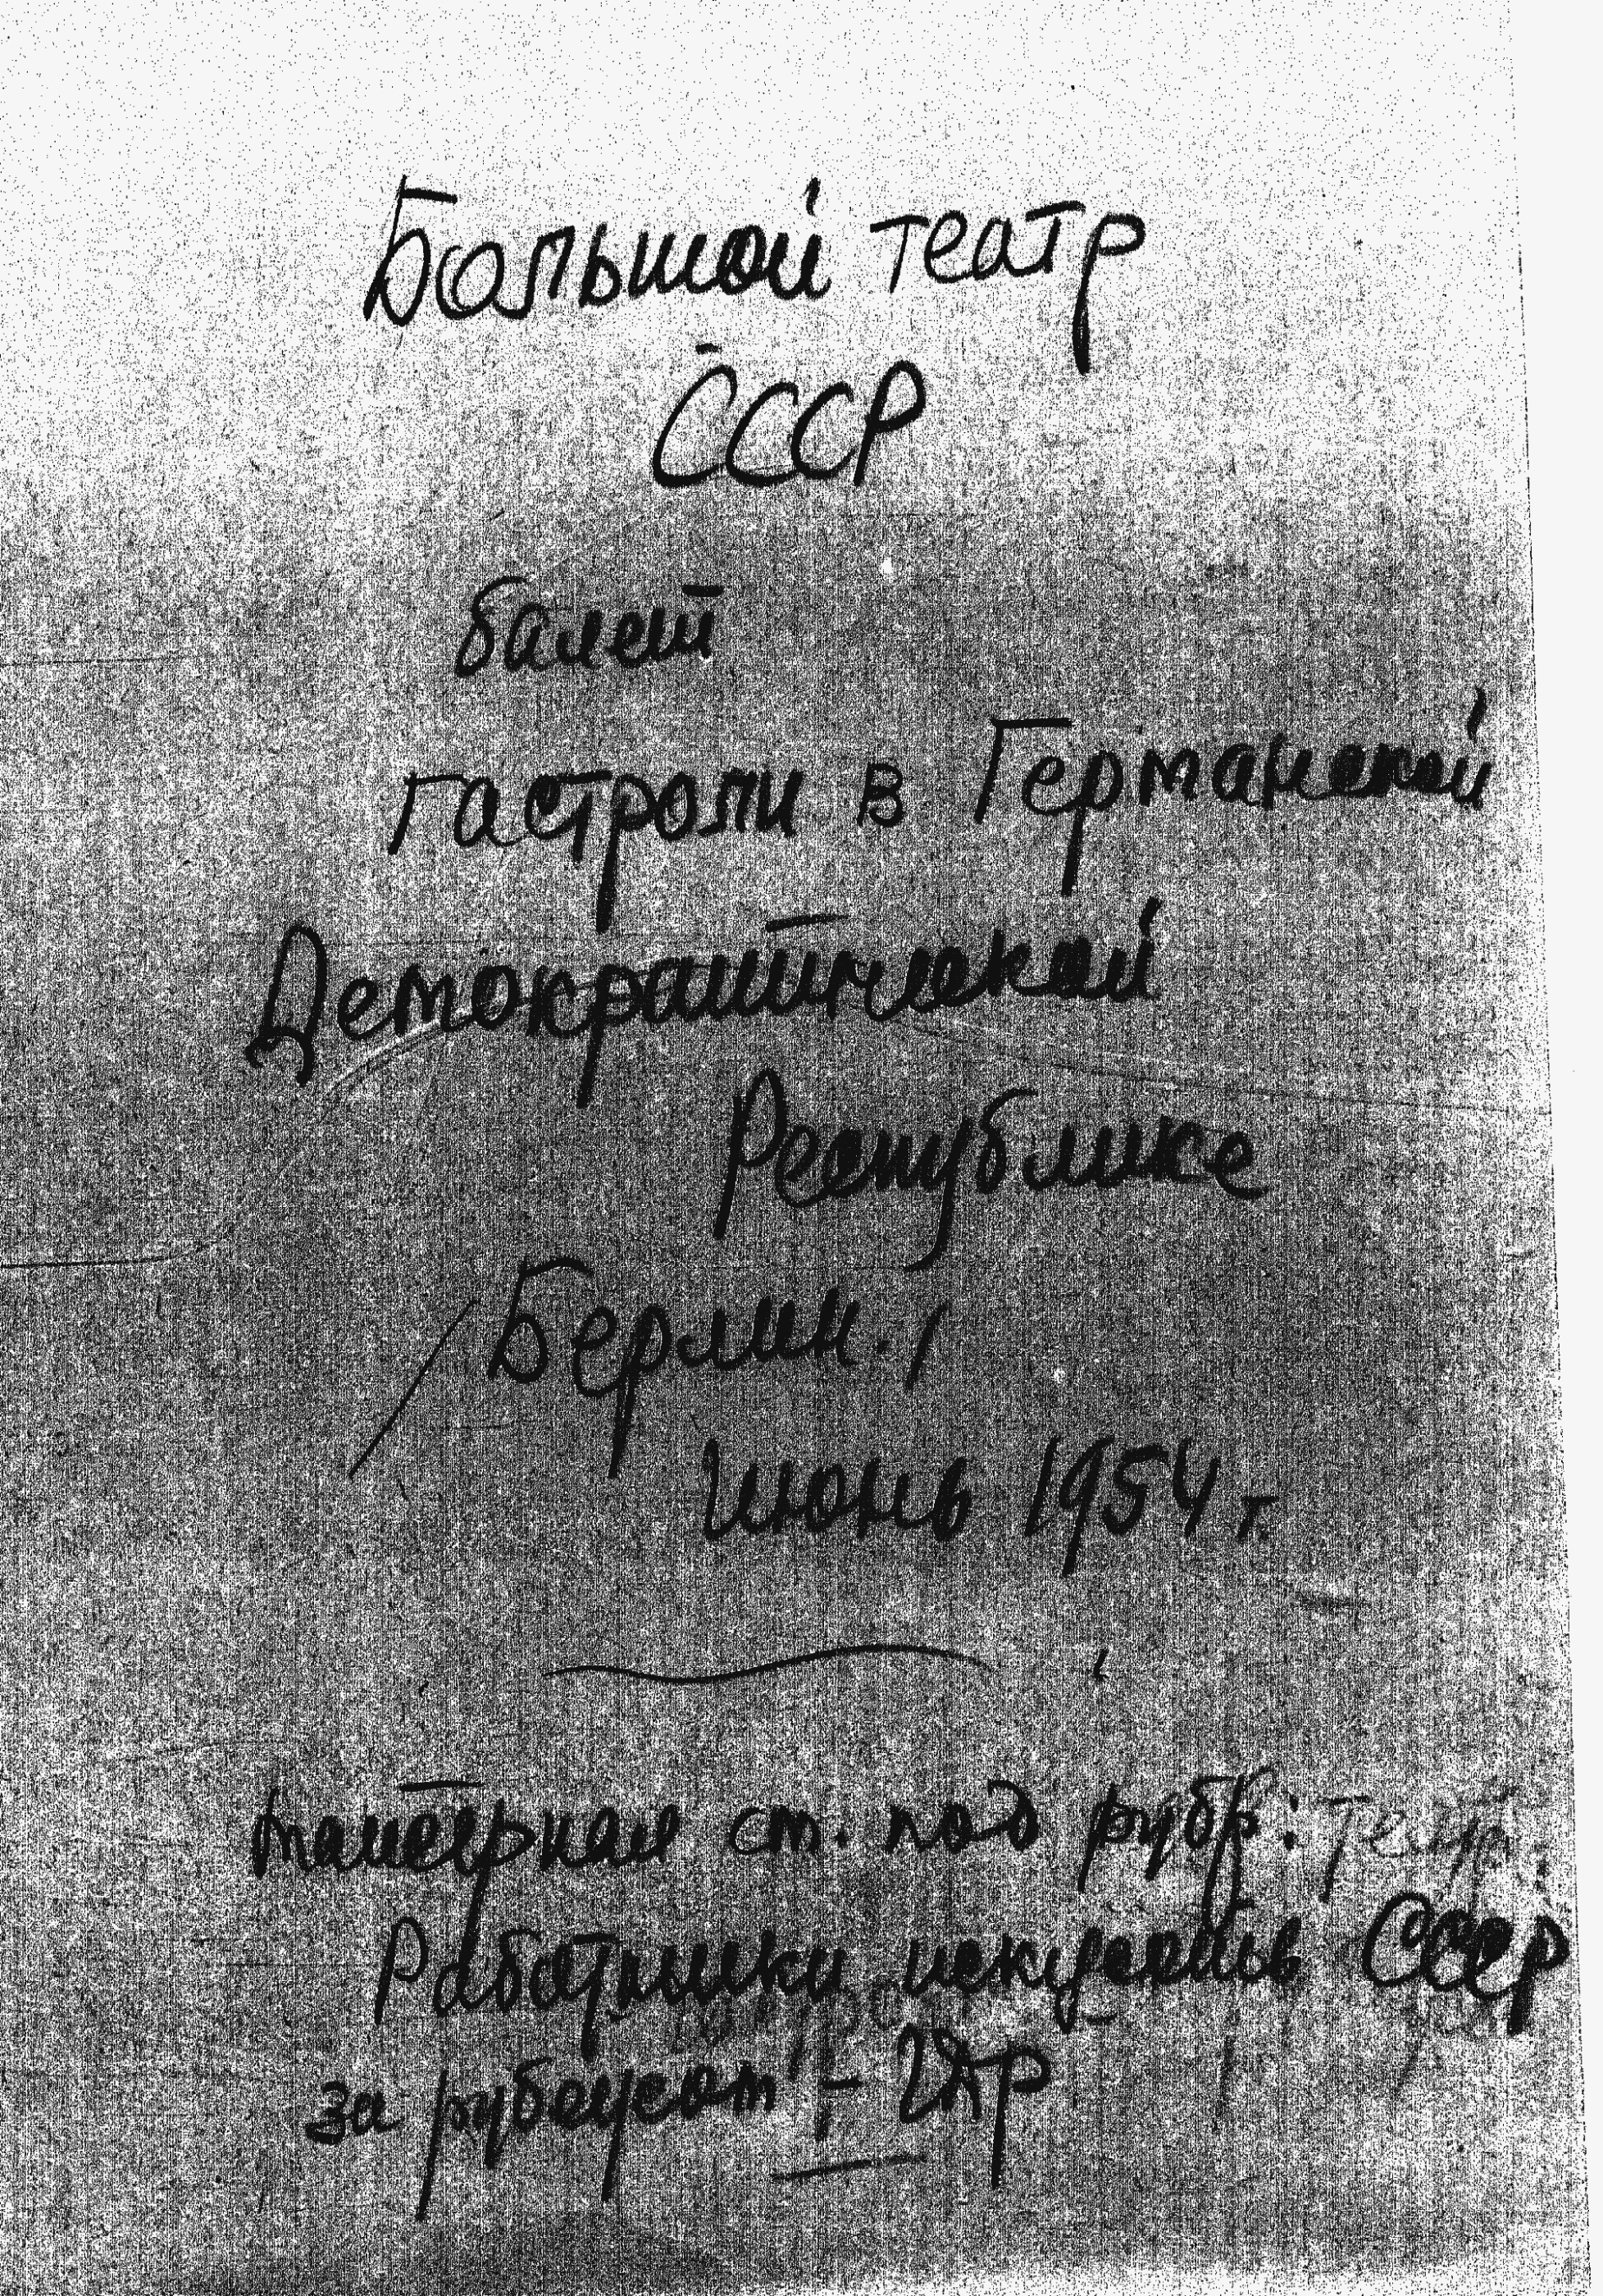 Большой театр
СССР
балет
гастроли в Германской
Демократической
Республике
/Берлин./
июнь 1954 г.
материал см. под рубр: Театр.
Работники искусств СССР
за рубежом - ГДР